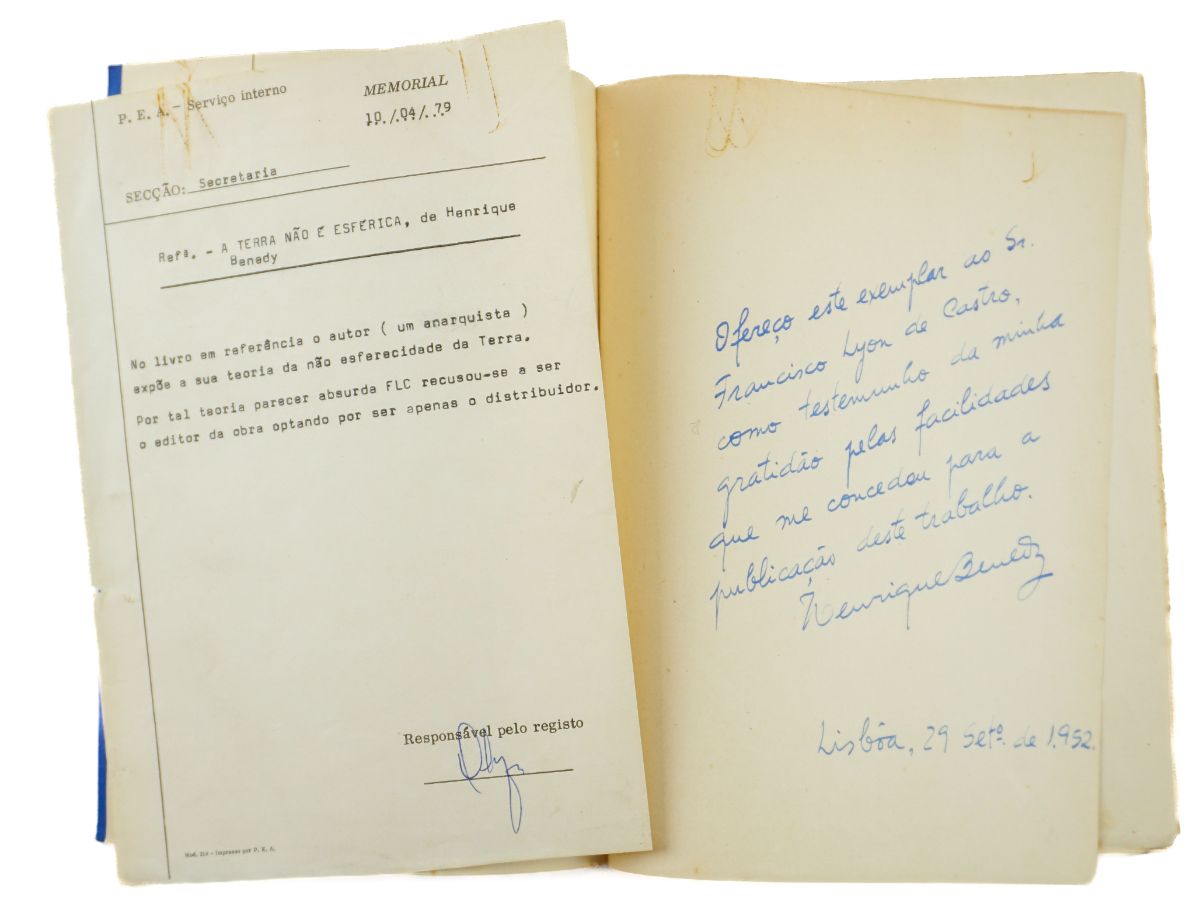 P. E. A. - Serviço interno
MEMORIAL
10./04/.79
SECÇÃO: Secretaria
Refª. - A TERRA NÃO É ESFÉRICA, de Henrique
Benedy
No livro em referência o autor ( um anarquista )
expõe a sua teoria da não esferecidade da Terra.
Por tal teoria parecer absurda FLC recusou-se a ser
o editor da obra optando por ser apenas o distribuidor.
Responsável pelo registo
Mod. 214 - Impresso por P. E. A.
Ofereço este exemplar ao Sr.
Francisco Lyon de Castro,
como testemunho da minha
gratidão pelas facilidades
que me concedeu para a
publicação deste trabalho.
Henrique Benedy
Lisbôa, 29 Setº. de 1.952.